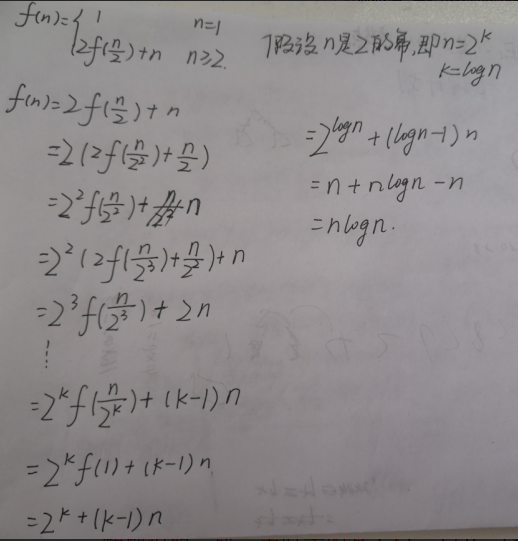 f(n)={ 1 n=1
2f(n/2)+n n≥2.
假设n是2的幂,即n=2^k
k=logn
f(n)=2f(n/2)+n
=2(2f(n/2²)+n/2)
=2²f(n/2²)+n
=2²(2f(n/2³)+n/2²)+n
=2³f(n/2³)+2n
⋮
=2^k f(n/2^k)+(k-1)n
=2^k f(1)+(k-1)n
=2^k+(k-1)n
=2^logn+(logn-1)n
=n+nlogn-n
=nlogn.